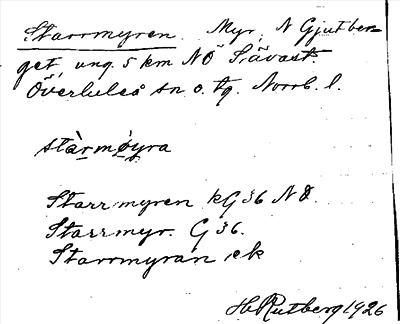 Starrmyren. Myr, N Gjutber-
get, ung. 5 km NÖ Sävast.
Överluleå sn o. tg. Norrb. l.
stàrmøyra
Starrmyren kG 36 NÖ.
Starrmyr. G 36.
Starrmyran, ek
H. Rutberg 1926